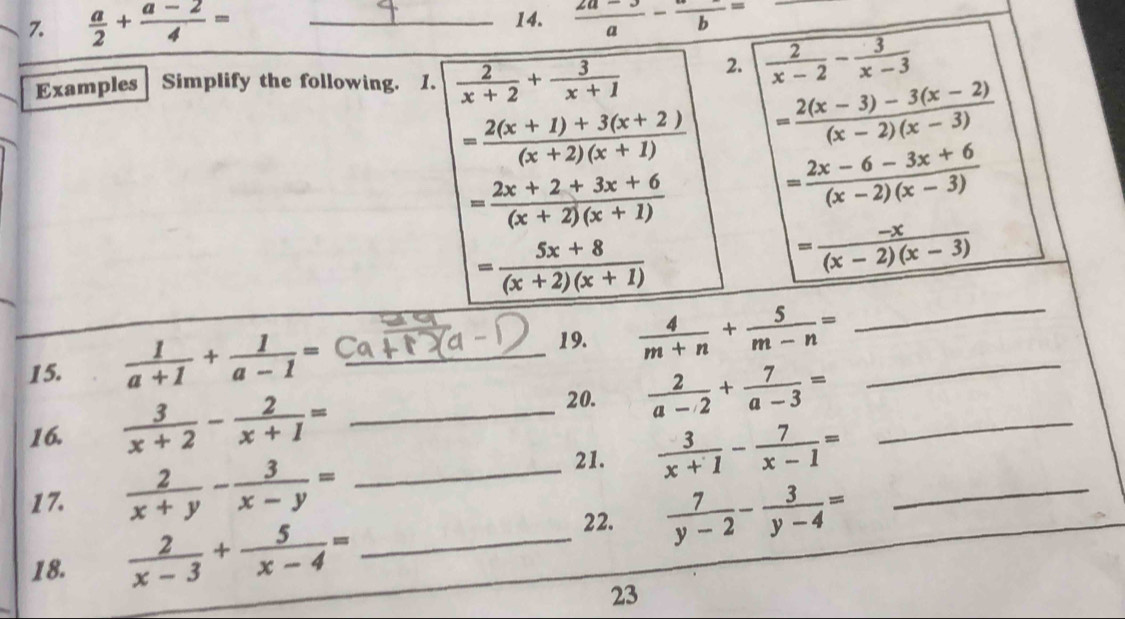 7. a/2 + (a - 2)/4 =
14. /a - /b =
Examples Simplify the following. 1. 2/(x + 2) + 3/(x + 1)
= (2(x + 1) + 3(x + 2 ))/((x + 2)(x + 1))
= (2x + 2 + 3x + 6)/((x + 2)(x + 1))
= (5x + 8)/((x + 2)(x + 1))
2. 2/(x - 2) - 3/(x - 3)
= (2(x - 3) - 3(x - 2))/((x - 2)(x - 3))
= (2x - 6 - 3x + 6)/((x - 2)(x - 3))
= -x/((x - 2)(x - 3))
15. 1/(a + 1) + 1/(a - 1) = 2a/((a+1)(a-1))
16. 3/(x + 2) - 2/(x + 1) =
17. 2/(x + y) - 3/(x - y) =
18. 2/(x - 3) + 5/(x - 4) =
19. 4/(m + n) + 5/(m - n) =
20. 2/(a - 2) + 7/(a - 3) =
21. 3/(x + 1) - 7/(x - 1) =
22. 7/(y - 2) - 3/(y - 4) =
23